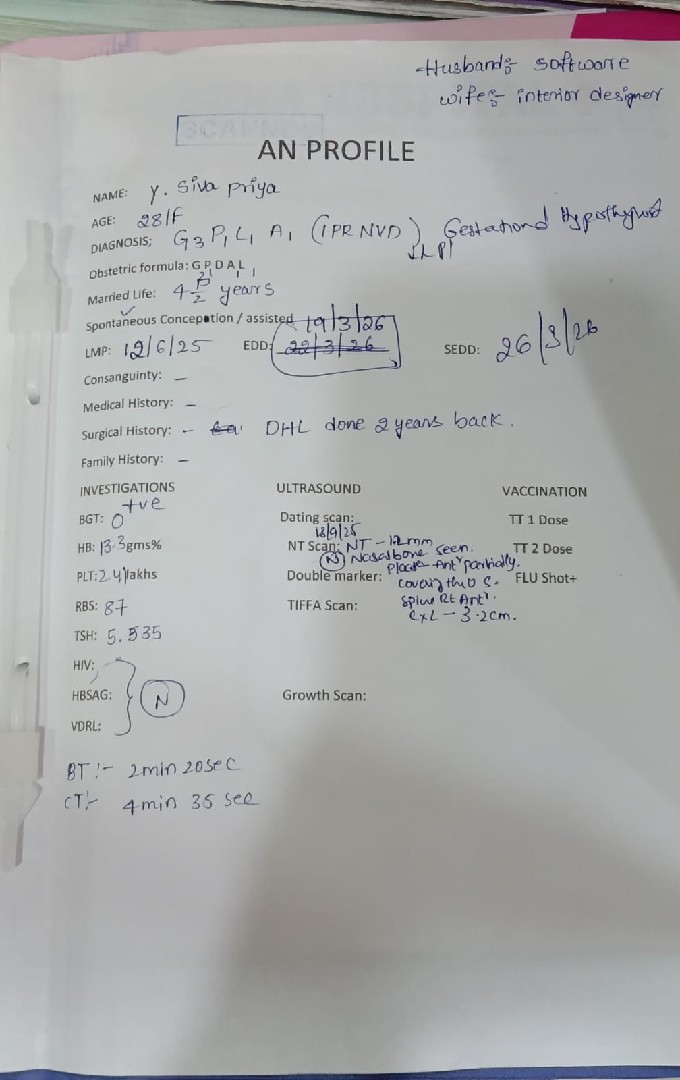 Husband:- software
wife:- interior designer
SCANNED
AN PROFILE
NAME: Y. Siva Priya
AGE: 28/F
DIAGNOSIS; G3 P1 L1 A1 (1PR NVD) Gestational Hypothyroid
↓LPI
Obstetric formula: G P D A L
3 1 1 1
Married Life: 4 1/2 years
Spontaneous Conception / assisted 19/3/26
LMP: 12/6/25 EDD: 22/3/26 SEDD: 26/3/26
Consanguinty: –
Medical History: –
Surgical History: - DHL done 2 years back.
Family History: –
INVESTIGATIONS ULTRASOUND VACCINATION
BGT: O +ve Dating scan: TT 1 Dose
18/9/25
HB: 13.3gms% NT Scan: NT - 1.2mm TT 2 Dose
(N) Nasal bone seen.
Placenta Antr partially.
PLT: 2.4 lakhs Double marker: covering the OS. FLU Shot+
RBS: 87 TIFFA Scan: Spine Rt Antr.
CxL - 3.2cm.
TSH: 5.535
HIV:
HBSAG: (N) Growth Scan:
VDRL:
BT:- 2min 20sec
CT:- 4min 35 sec